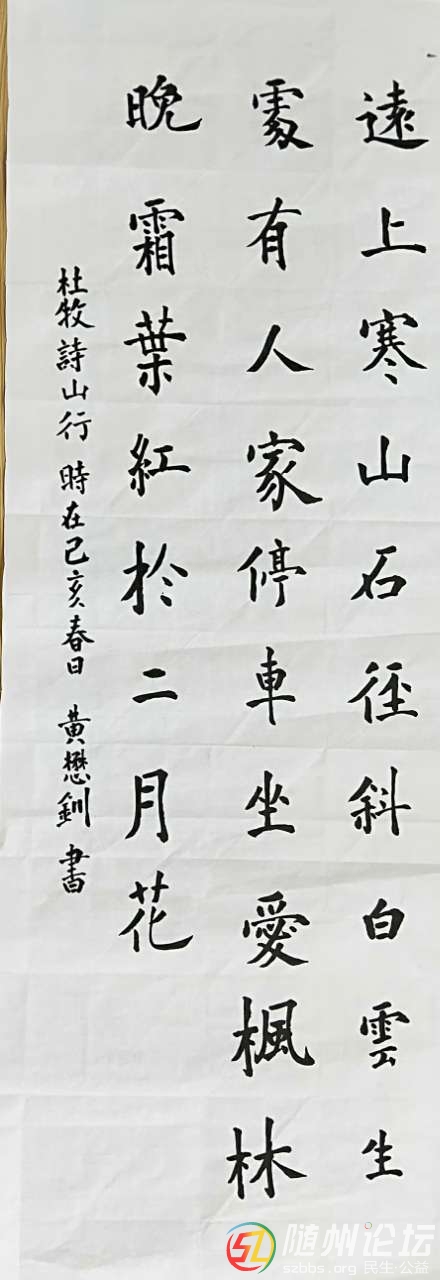 遠上寒山石徑斜白雲生
處有人家停車坐愛楓林
晚霜葉紅於二月花
杜牧詩山行 時在己亥春日 黃懋釧書
随州论坛
szbbs.org 民生·公益